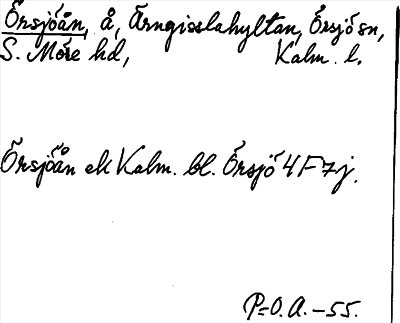 Örsjöån, å, Ärngisslahyltan, Örsjö sn,
S. Möre hd, Kalm. l.
Örsjöån ek Kalm. bl. Örsjö 4F7j.
P=O.A.-55.